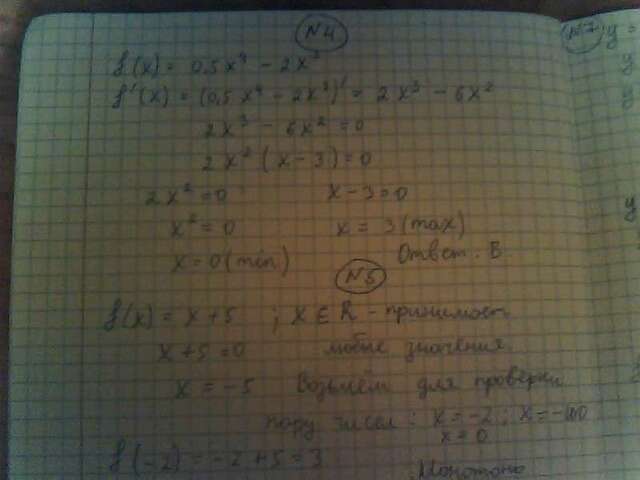 N4
f(x) = 0,5x⁴ - 2x³
f'(x) = (0,5x⁴ - 2x³)' = 2x³ - 6x²
2x³ - 6x² = 0
2x² (x - 3) = 0
2x² = 0 x - 3 = 0
x² = 0 x = 3 (max)
x = 0 (min) Ответ: В
N5
f(x) = x + 5 ; x ∈ R - принимает
x + 5 = 0 любые значения.
x = -5 Возьмём для проверки
пару чисел: x = -2 ; x = -100
x = 0
f(-2) = -2 + 5 = 3
Монотонно
N7
y =
y
y
y